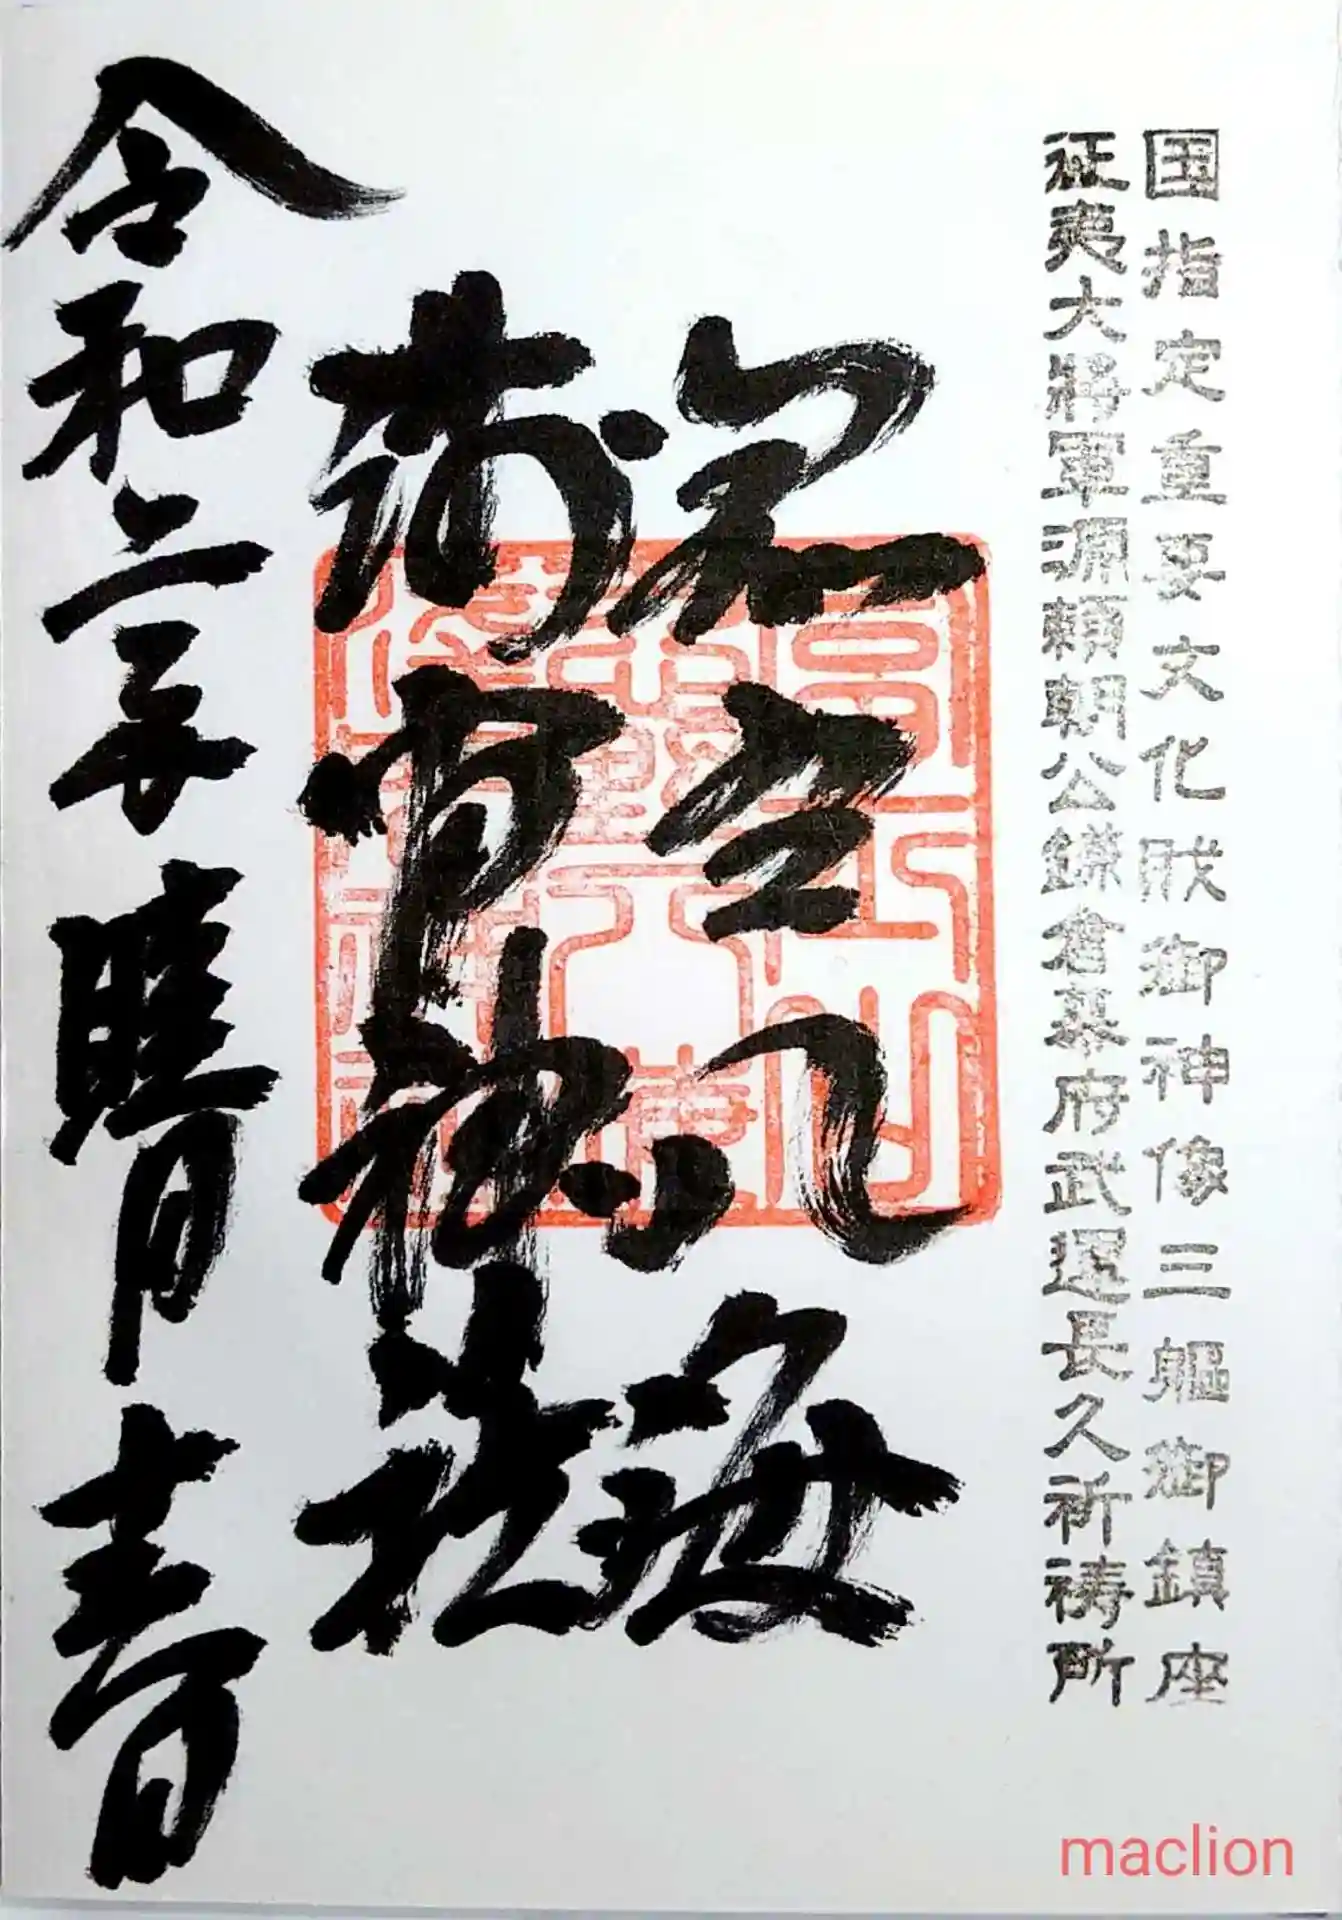 国指定重要文化財御神像三躯御鎮座
征夷大將軍源頼朝公鎌倉幕府武運長久祈祷所
忍野八海
浅間神社
令和二年睦月吉日
maclion